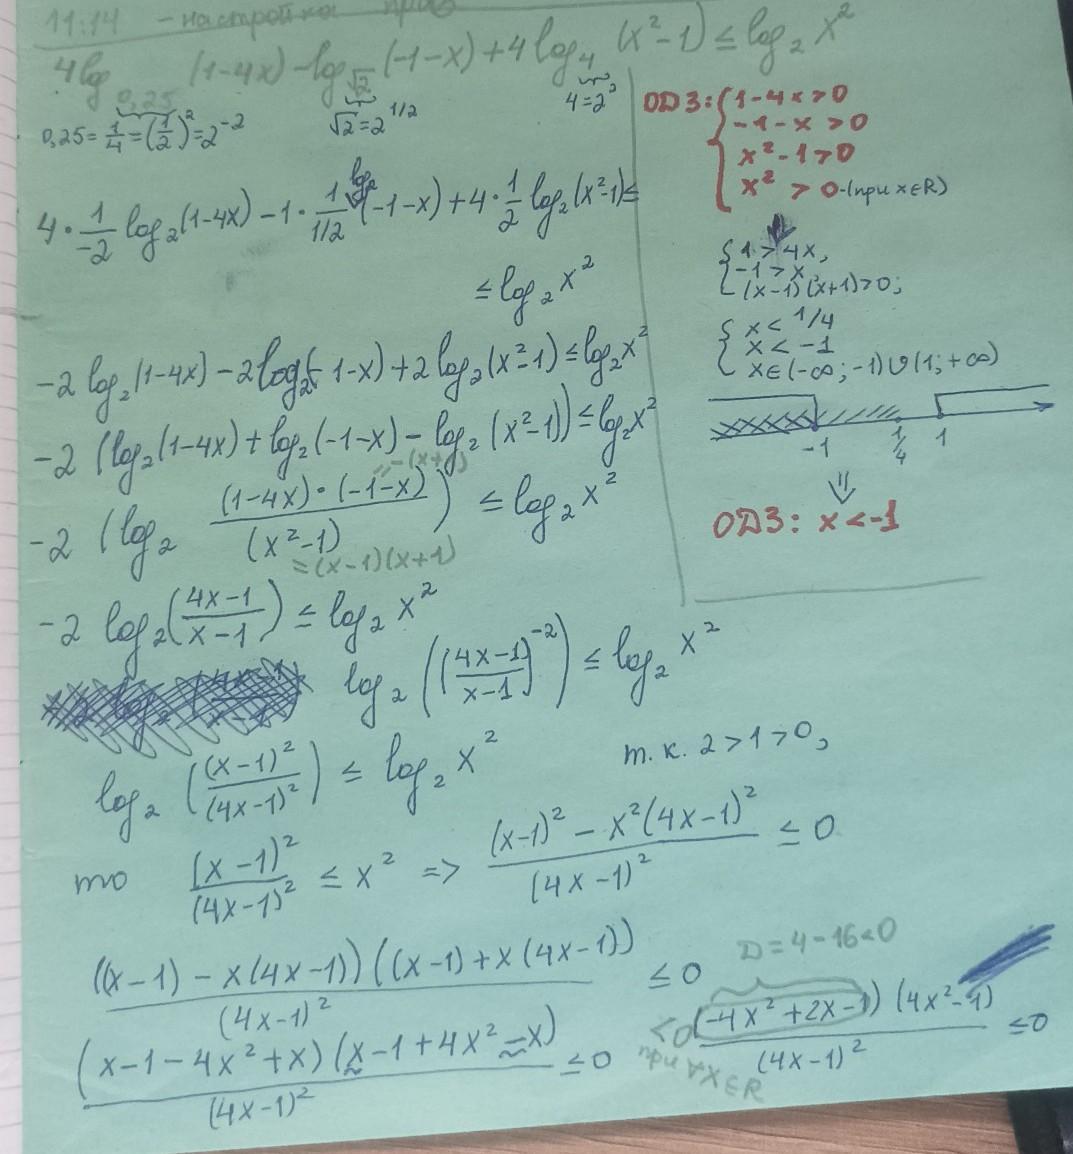 11:14 - настройка
4log₀,₂₅ (1-4x) - log_√2 (-1-x) + 4log₄ (x²-1) ≤ log₂ x²
0,25 = 1/4 = (1/2)² = 2⁻²
√2 = 2^(1/2)
4 = 2²
4 · 1/-2 log₂(1-4x) - 1 · 1/(1/2) log₂(-1-x) + 4 · 1/2 log₂(x²-1) ≤
≤ log₂ x²
-2 log₂(1-4x) - 2log₂(-1-x) + 2log₂(x²-1) ≤ log₂x²
-2 (log₂(1-4x) + log₂(-1-x) - log₂(x²-1)) ≤ log₂x²
= -(x+1)
-2 (log₂ (1-4x)·(-1-x)/(x²-1)) ≤ log₂ x²
= (x-1)(x+1)
-2 log₂((4x-1)/(x-1)) ≤ log₂ x²
log₂(((4x-1)/(x-1))⁻²) ≤ log₂ x²
log₂((x-1)²/(4x-1)²) ≤ log₂ x² т.к. 2>1>0,
то (x-1)²/(4x-1)² ≤ x² => ((x-1)² - x²(4x-1)²)/(4x-1)² ≤ 0
((x-1) - x(4x-1))((x-1) + x(4x-1))/(4x-1)² ≤ 0
(x-1-4x²+x)(x-1+4x²-x)/(4x-1)² ≤ 0
D = 4-16<0
(-4x²+2x-1)(4x²-1)/(4x-1)² ≤ 0
<0
при ∀x∈R
ОДЗ: { 1-4x>0
-1-x>0
x²-1>0
x² > 0 - (при x∈R)
⇓
{ 1>4x,
-1>x,
(x-1)(x+1)>0;
{ x < 1/4
x < -1
x∈(-∞;-1)∪(1;+∞)
-1 1/4 1
⇓
ОДЗ: x<-1